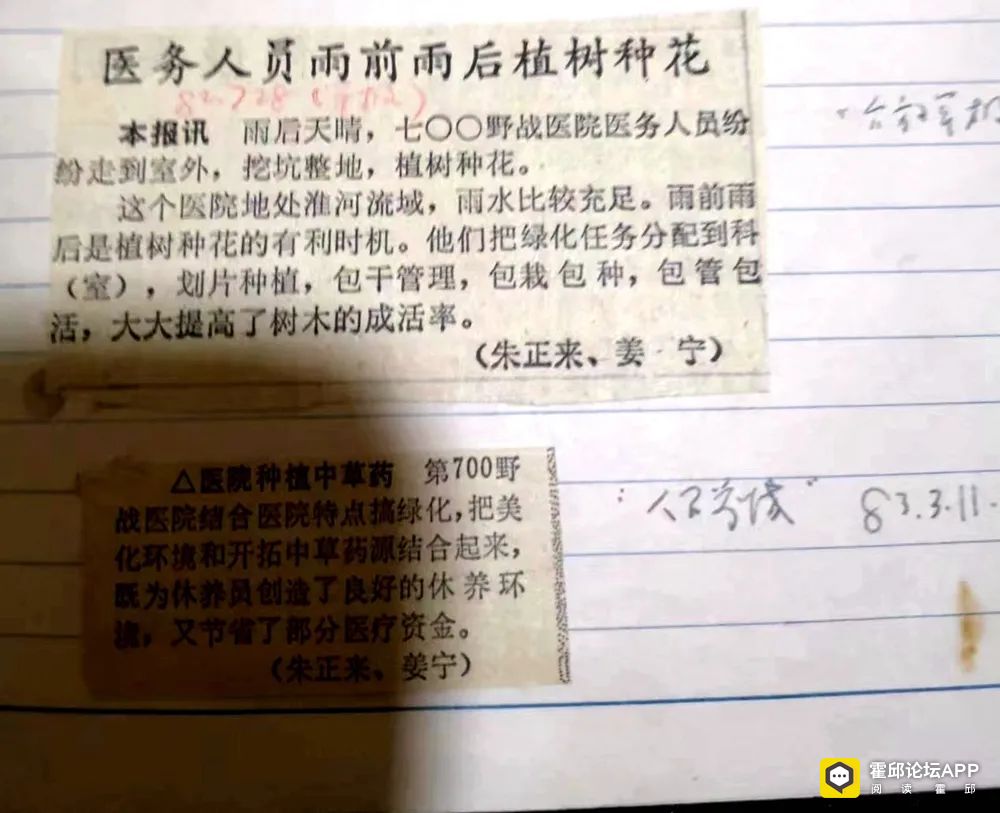 医务人员雨前雨后植树种花
本报讯 雨后天晴，七〇〇野战医院医务人员纷
纷走到室外，挖坑整地，植树种花。
这个医院地处淮河流域，雨水比较充足。雨前雨
后是植树种花的有利时机。他们把绿化任务分配到科
（室），划片种植，包干管理，包栽包种，包管包
活，大大提高了树木的成活率。
（朱正来、姜宁）
△医院种植中草药 第700野
战医院结合医院特点搞绿化，把美
化环境和开拓中草药源结合起来，
既为休养员创造了良好的休养环
境，又节省了部分医疗资金。
（朱正来、姜宁）
83.3.11.
霍邱论坛APP
阅读霍邱